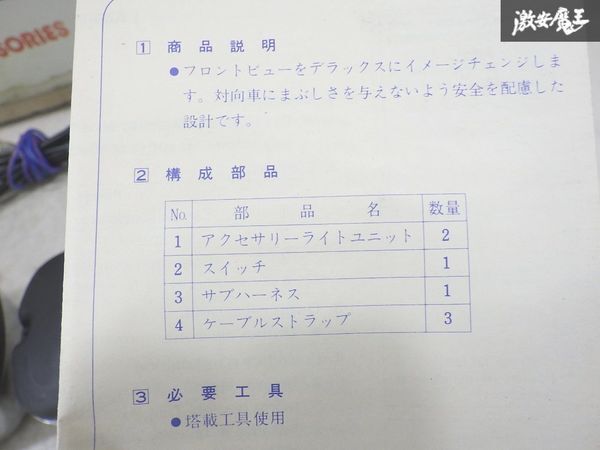 激安魔王
SORIES
1 商品説明
●フロントビューをデラックスにイメージチェンジしま
す。対向車にまぶしさを与えないよう安全を配慮した
設計です。
2 構成部品
No. 部品名 数量
1 アクセサリーライトユニット 2
2 スイッチ 1
3 サブハーネス 1
4 ケーブルストラップ 3
3 必要工具
●塔載工具使用